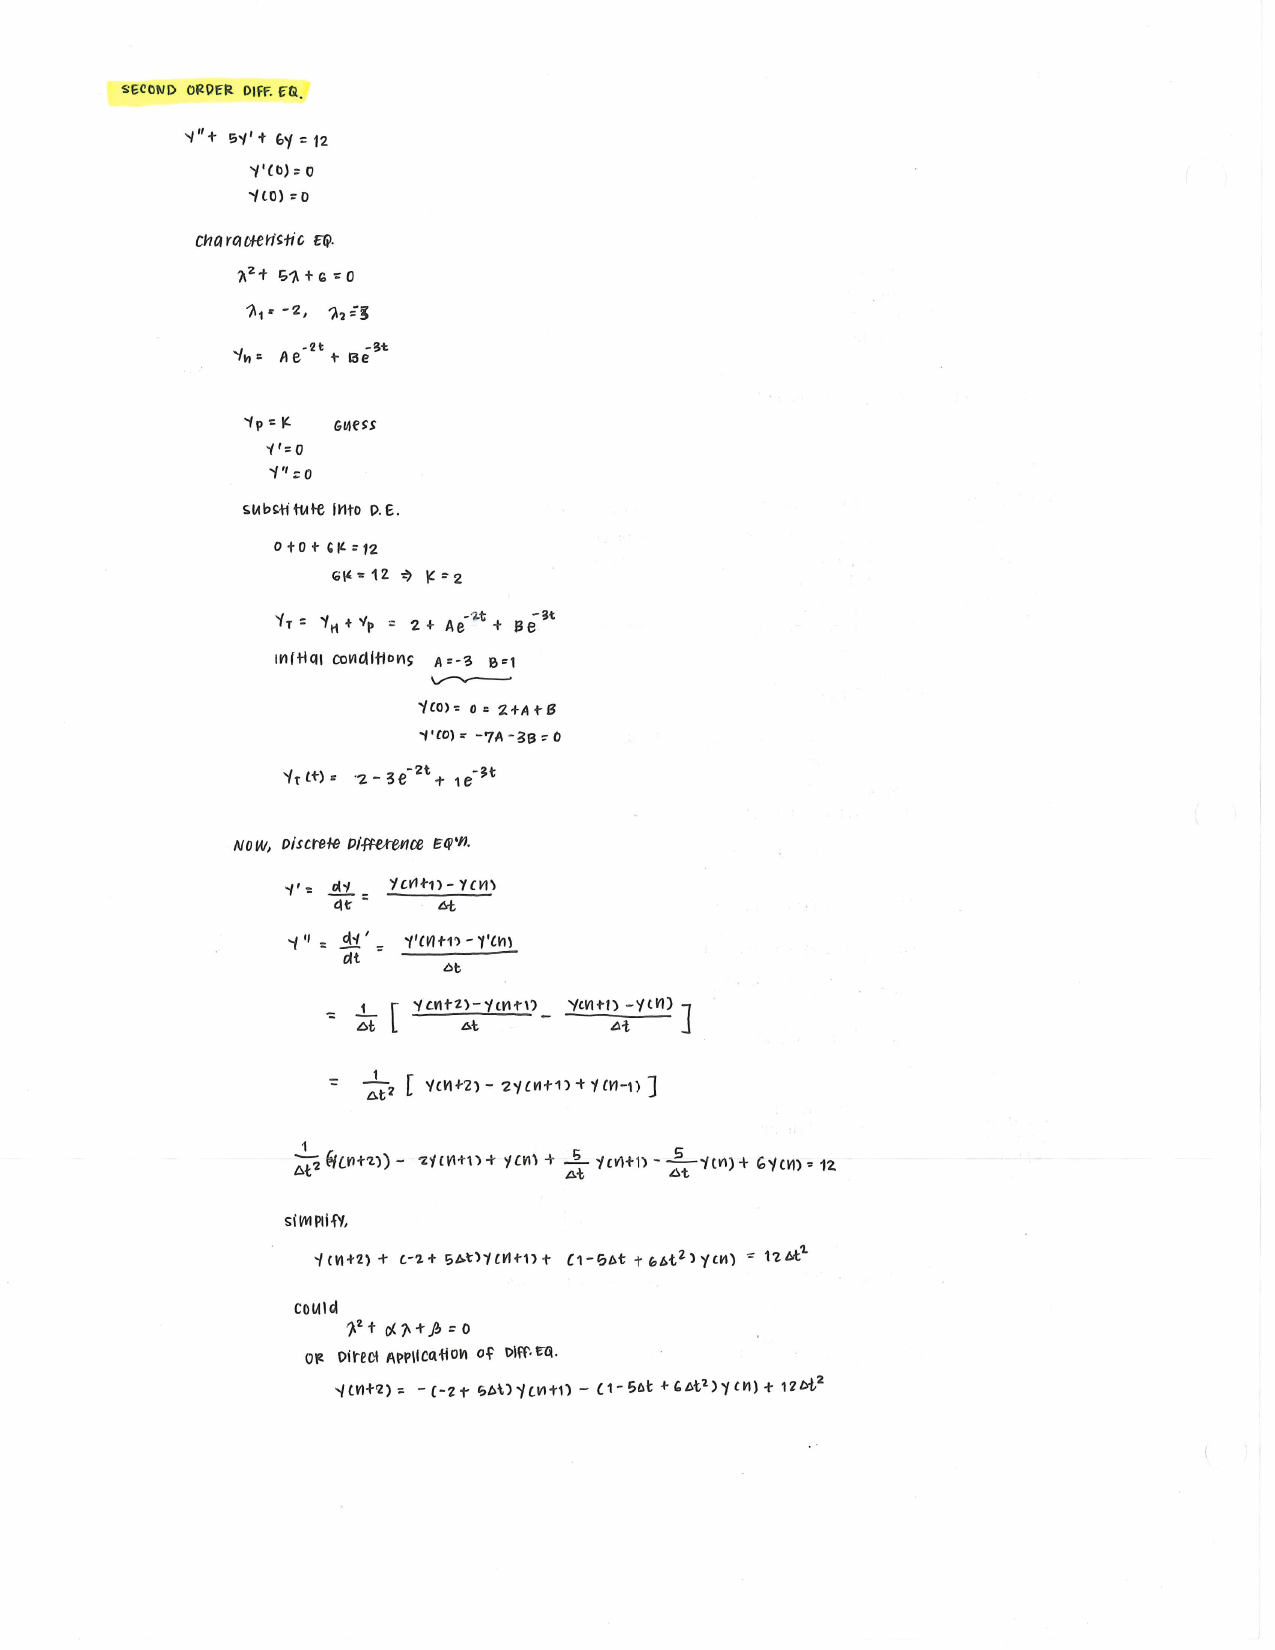 SECOND ORDER DIFF. EQ.
y'' + 5y' + 6y = 12
y'(0) = 0
y(0) = 0
characteristic EQ.
λ² + 5λ + 6 = 0
λ₁ = -2, λ₂ = -3
yₕ = Ae^-2t + Be^-3t
yₚ = K guess
y' = 0
y'' = 0
substitute into D.E.
0 + 0 + 6K = 12
6K = 12 ⇒ K = 2
y_T = y_H + y_p = 2 + Ae^-2t + Be^-3t
initial conditions A = -3 B = 1
y(0) = 0 = 2 + A + B
y'(0) = -7A - 3B = 0
y_T(t) = 2 - 3e^-2t + 1e^-3t
NOW, Discrete Difference EQ'n.
y' = dy/dt = (y(n+1) - y(n))/Δt
y'' = dy'/dt = (y'(n+1) - y'(n))/Δt
= 1/Δt [ (y(n+2) - y(n+1))/Δt - (y(n+1) - y(n))/Δt ]
= 1/Δt² [ y(n+2) - 2y(n+1) + y(n-1) ]
1/Δt² (y(n+2)) - 2y(n+1) + y(n) + 5/Δt y(n+1) - 5/Δt y(n) + 6y(n) = 12
simplify,
y(n+2) + (-2 + 5Δt)y(n+1) + (1 - 5Δt + 6Δt²) y(n) = 12Δt²
could
λ² + αλ + β = 0
OR Direct Application of Diff. EQ.
y(n+2) = -(-2 + 5Δt)y(n+1) - (1 - 5Δt + 6Δt²) y(n) + 12Δt²